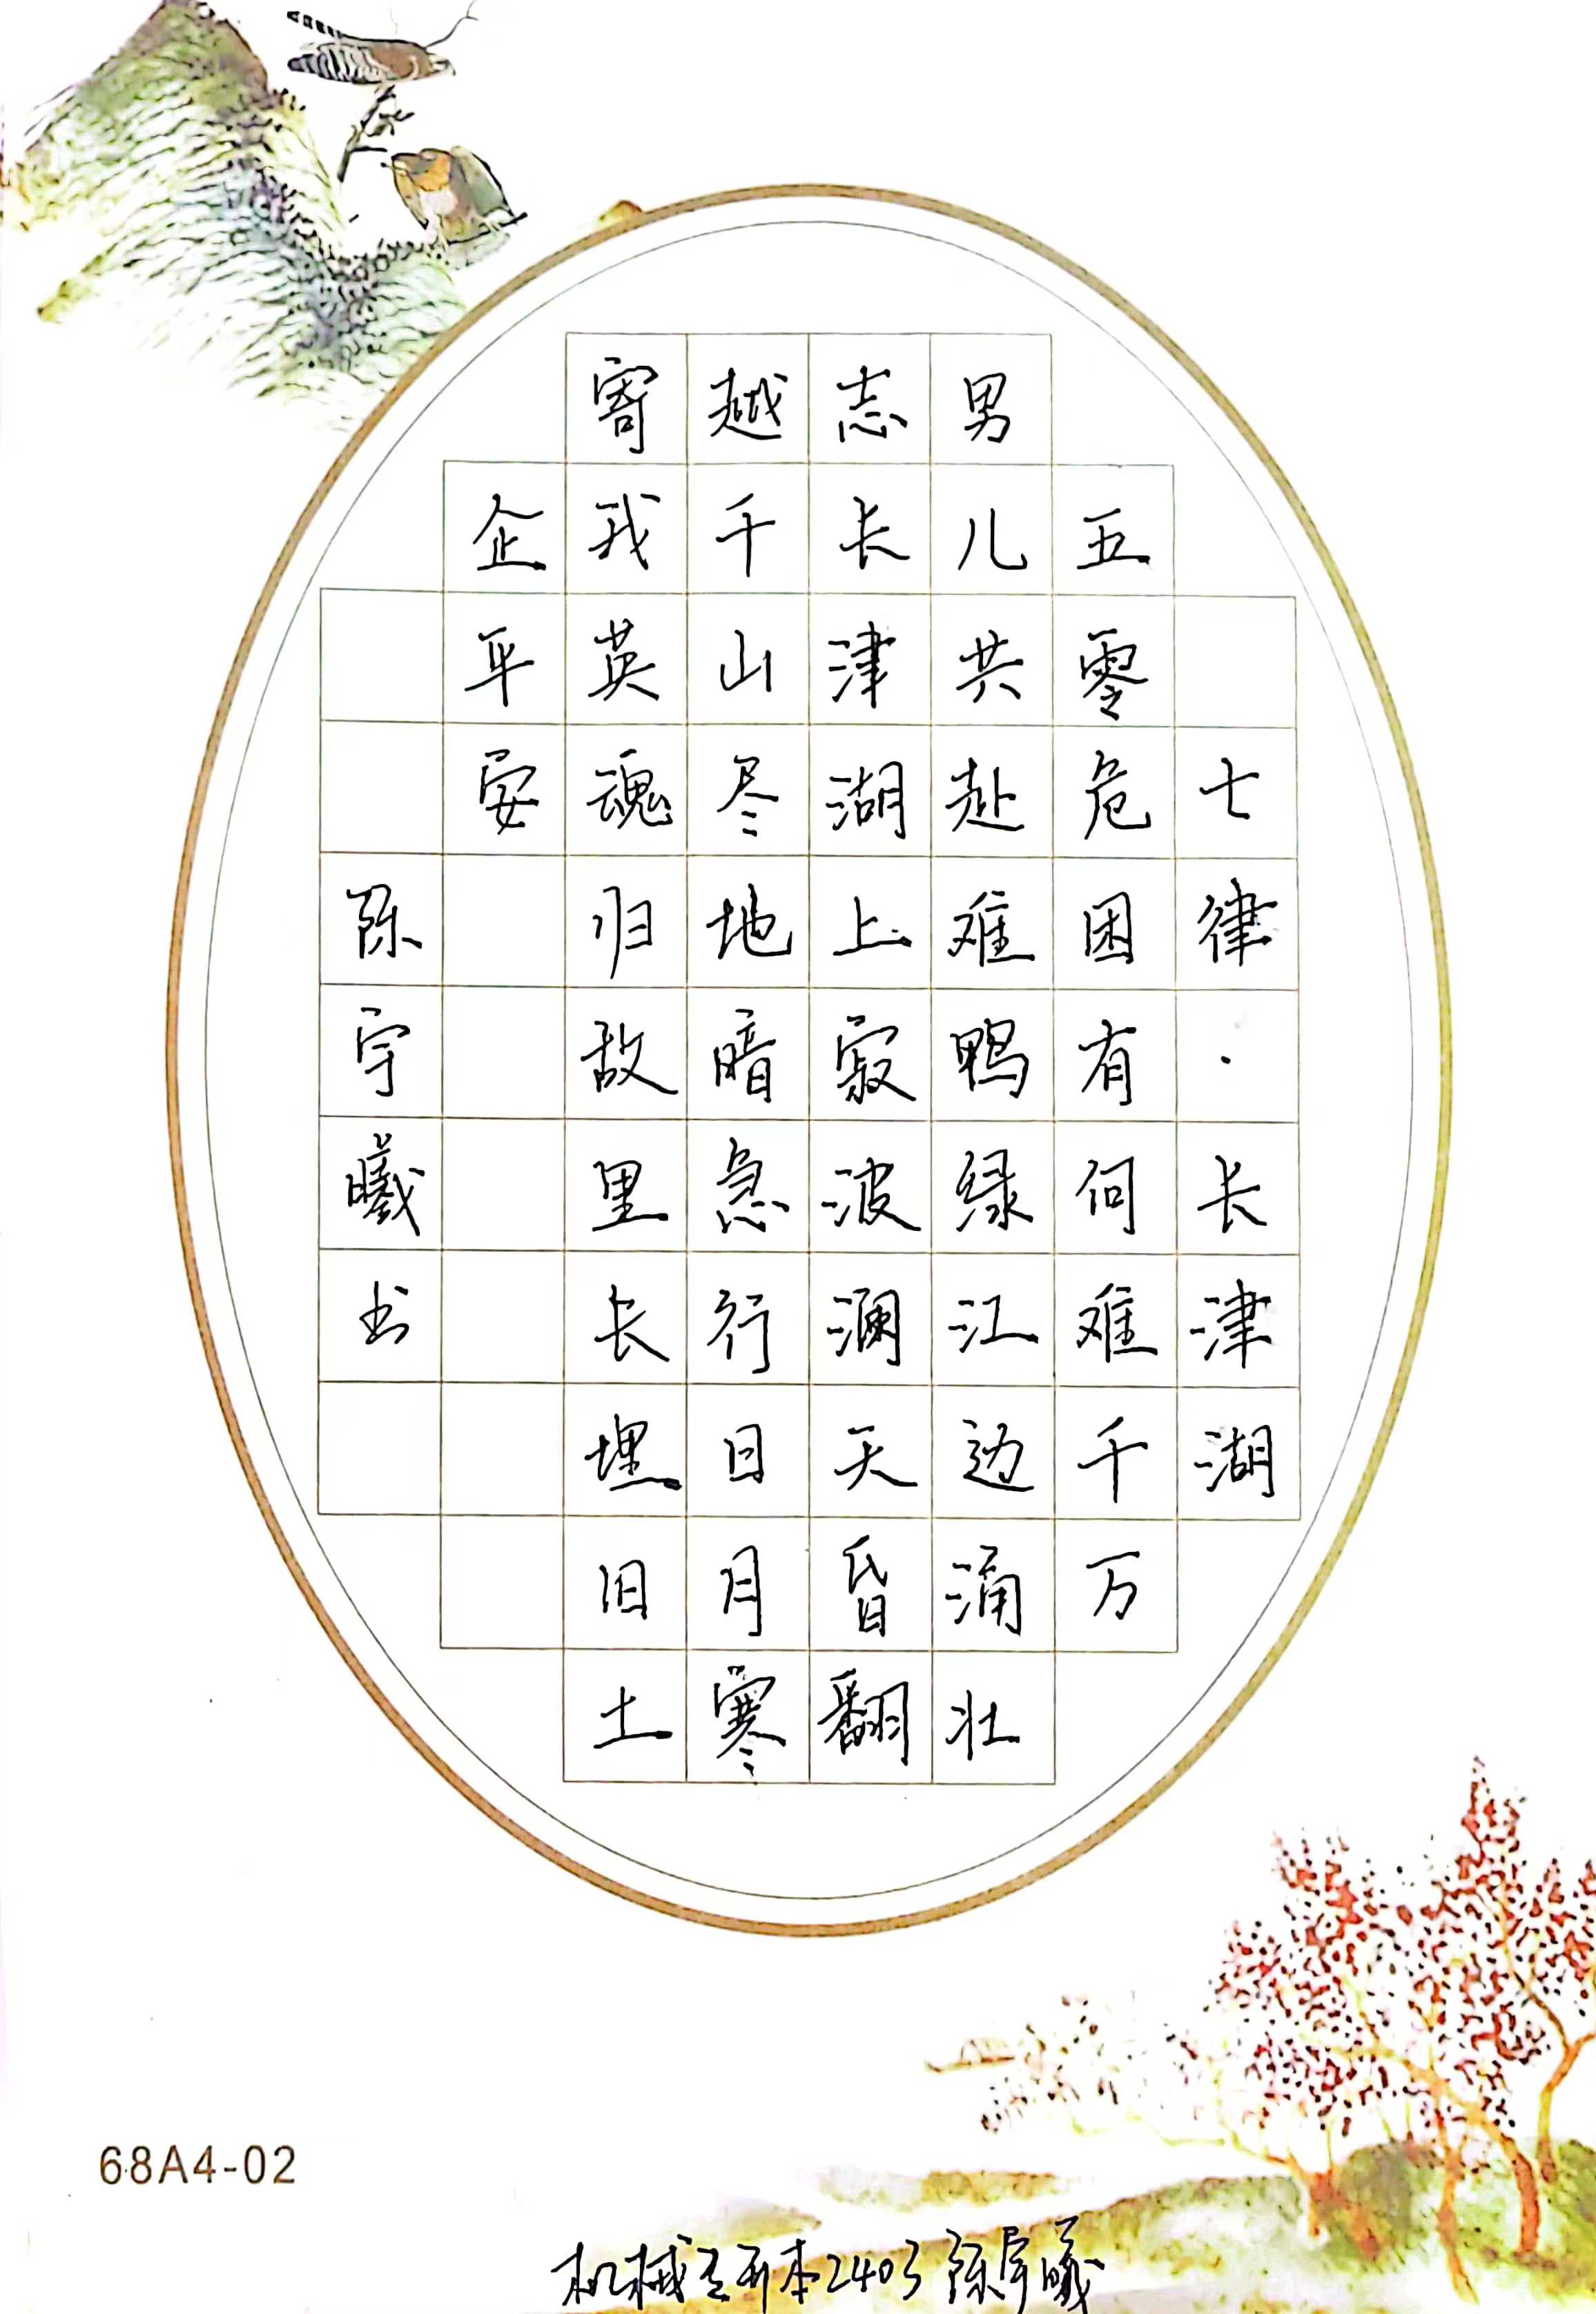 七律·长津湖
五零危困有何难千万
男儿共赴难鸭绿江边涌壮
志长津湖上寂波澜天昏翻
越千山尽地暗急行日月寒
寄我英魂归故里长埋旧土
企平安
陈宇曦书
68A4-02
机械专升本2403 陈宇曦